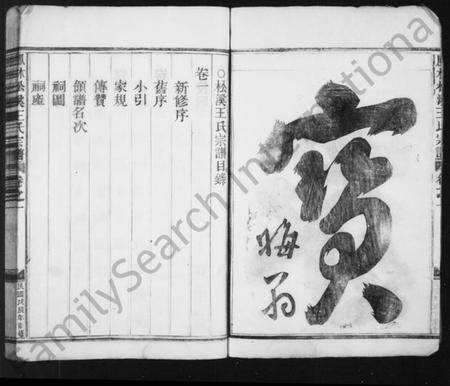 鳳林松溪王氏宗譜
卷之一
寶
晦翁
○松溪王氏宗譜目錄
卷一
新修序
舊序
小引
家規
傳贊
領譜名次
祠圖
祠產
鳳林松溪王氏宗譜
卷之一
FamilySearch International